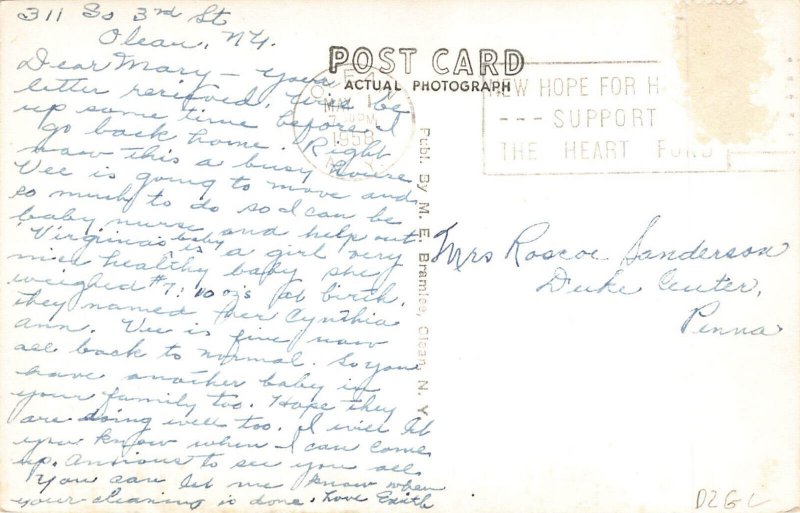 311 So 3rd St
Olean, N.Y.
Dear Mary - Your
letter received. Will be
up some time before I
go back home. Right
now this a busy house
Vee is going to move and
so much to do so I can be
baby nurse and help out.
Virginia's baby is a girl very
nice healthy baby she
weighed #7: 10 ozs at birth.
they named her Cynthia
Ann. Vee is fine now
all back to normal. So you
have another baby in
your family too. Hope they
are doing well too. I will let
you know when I can come
up. Anxious to see you all.
You can let me know when
your cleaning is done. Love Edith
POST CARD
ACTUAL PHOTOGRAPH
OLEAN
1958
N.Y.
NEW HOPE FOR H
--- SUPPORT
THE HEART FUND
Publ. By M. E. Bramlee, Olean, N. Y.
Mrs Roscoe Sanderson
Duke Center,
Penna
D2GL